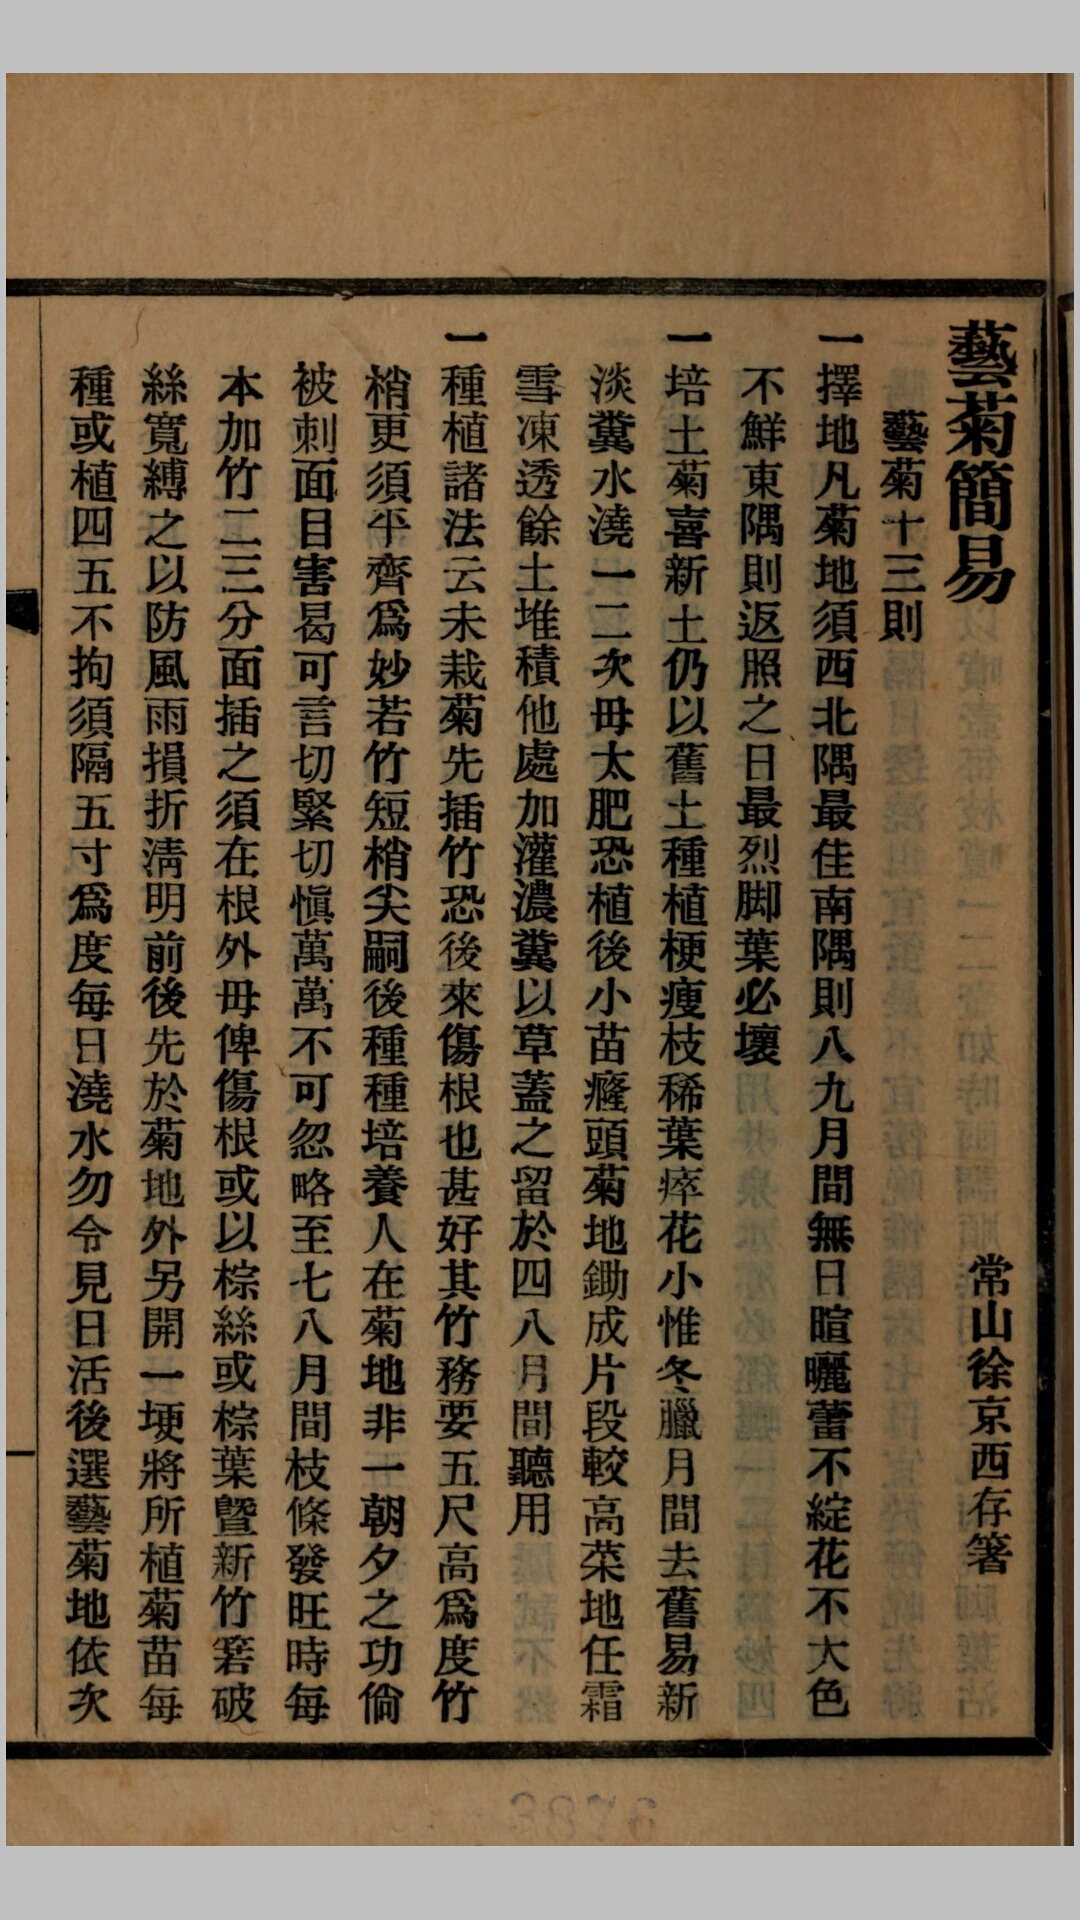 藝菊簡易
常山徐京西存箸
藝菊十三則
一擇地凡菊地須西北隅最佳南隅則八九月間無日暄曬蕾不綻花不大色
不鮮東隅則返照之日最烈脚葉必壞
一培土菊喜新土仍以舊土種植梗瘦枝稀葉瘁花小惟冬臘月間去舊易新
淡糞水澆一二次毋太肥恐植後小苗癃頭菊地鋤成片段較高菜地任霜
雪凍透餘土堆積他處加灌濃糞以草蓋之留於四八月間聽用
一種植諸法云未栽菊先插竹恐後來傷根也甚好其竹務要五尺高爲度竹
梢更須平齊爲妙若竹短梢尖嗣後種種培養人在菊地非一朝夕之功倘
被刺面目害曷可言切緊切愼萬萬不可忽略至七八月間枝條發旺時每
本加竹二三分面插之須在根外毋俾傷根或以棕絲或棕葉曁新竹箬破
絲寬縛之以防風雨損折淸明前後先於菊地外另開一埂將所植菊苗每
種或植四五不拘須隔五寸爲度每日澆水勿令見日活後選藝菊地依次
3876